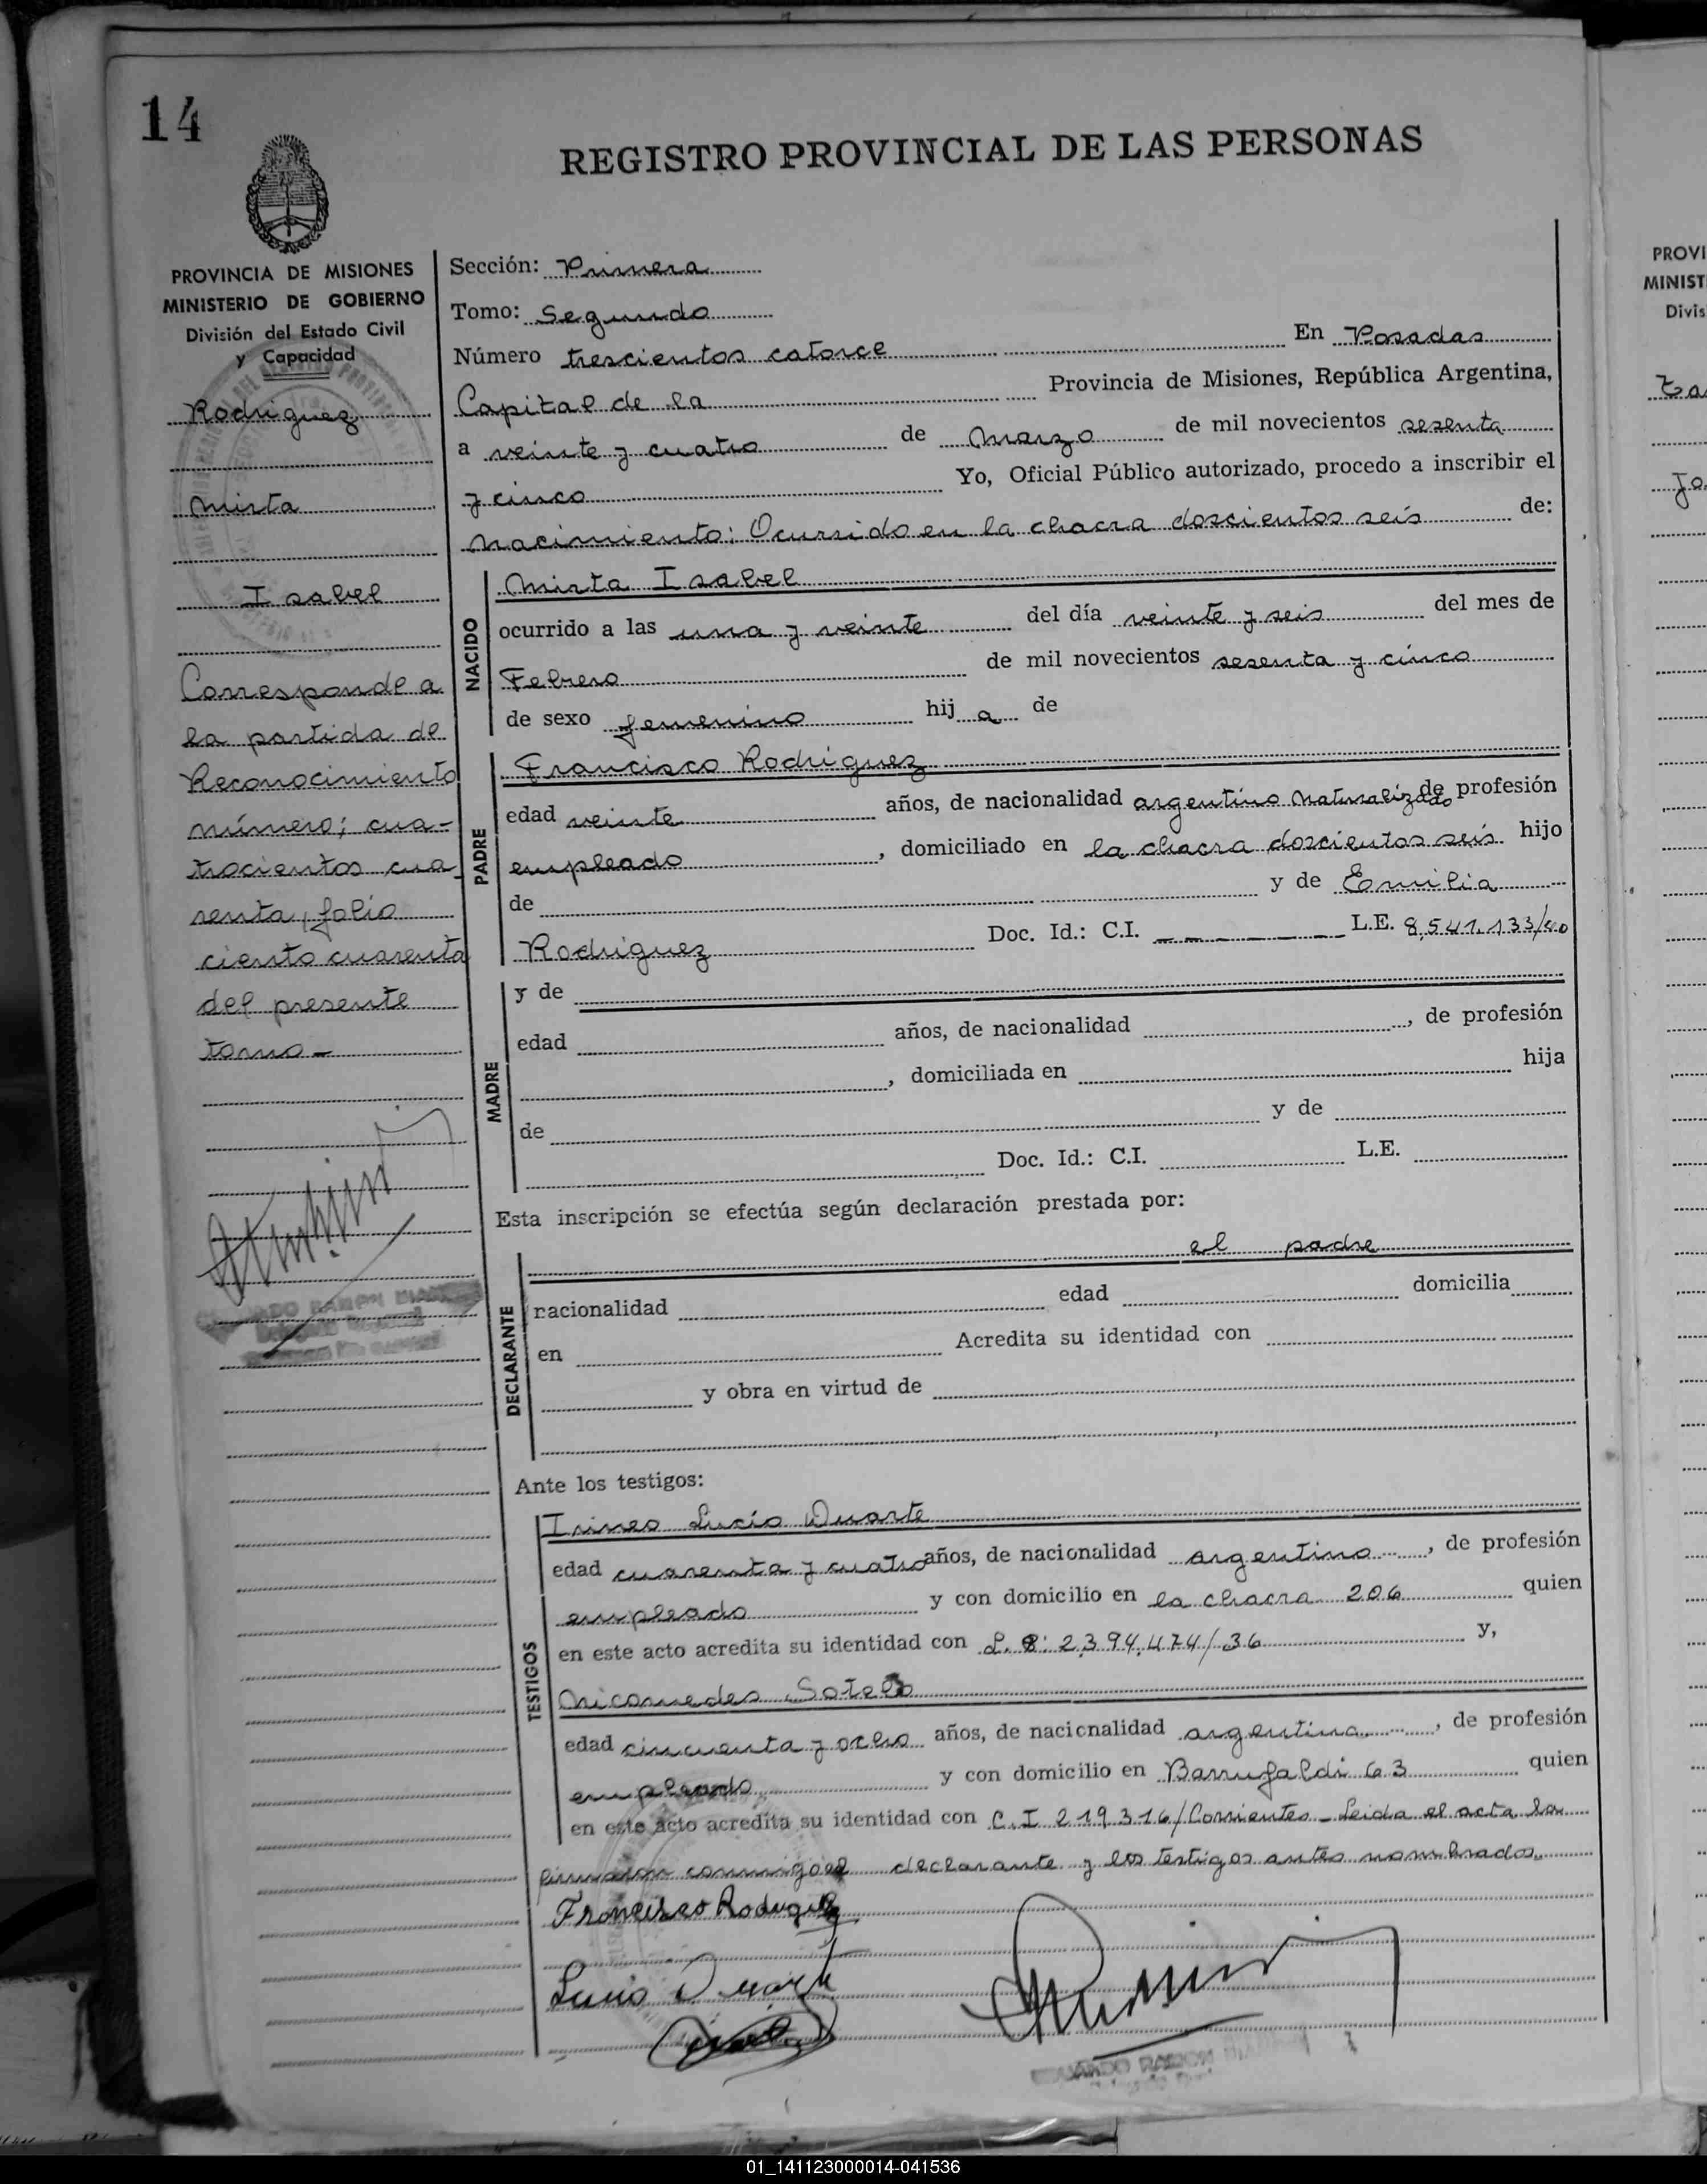 14
REGISTRO PROVINCIAL DE LAS PERSONAS
PROVINCIA DE MISIONES
MINISTERIO DE GOBIERNO
División del Estado Civil
y Capacidad
Rodriguez
Mirta
Isabel
Corresponde a
la partida de
Reconocimiento
número; cua-
trocientos cua-
renta, folio
ciento cuarenta
del presente
tomo-
Sección: Primera
Tomo: Segundo
Número trescientos catorce En Posadas
Capital de la Provincia de Misiones, República Argentina,
a veinte y cuatro de Marzo de mil novecientos sesenta
y cinco Yo, Oficial Público autorizado, procedo a inscribir el
Nacimiento: Ocurrido en la chacra doscientos seis de:
NACIDO
Mirta Isabel
ocurrido a las una y veinte del día veinte y seis del mes de
Febrero de mil novecientos sesenta y cinco
de sexo femenino hij a de
PADRE
Francisco Rodriguez
edad veinte años, de nacionalidad argentino Naturalizado de profesión
empleado, domiciliado en la chacra doscientos seis hijo
de y de Emilia
Rodriguez Doc. Id.: C.I. L.E. 8.541.133/60
MADRE
y de
edad años, de nacionalidad , de profesión
, domiciliada en hija
de y de
Doc. Id.: C.I. L.E.
Esta inscripción se efectúa según declaración prestada por:
el padre
DECLARANTE
nacionalidad edad domicilia
en Acredita su identidad con
y obra en virtud de
Ante los testigos:
TESTIGOS
Irineo Lucio Duarte
edad cuarenta y cuatro años, de nacionalidad argentino, de profesión
empleado y con domicilio en la chacra 206 quien
en este acto acredita su identidad con L.E: 2.394.474/36 y,
Nicomedes Sotelo
edad cincuenta y ocho años, de nacionalidad argentina, de profesión
empleado y con domicilio en Barrufaldi 63 quien
en este acto acredita su identidad con C.I 219.316/Corrientes - Leida el acta la
firmaron conmigo el declarante y los testigos antes nombrados.
Francisco Rodriguez
Lucio Duarte
PROVI
MINIST
Divis
01_141123000014-041536